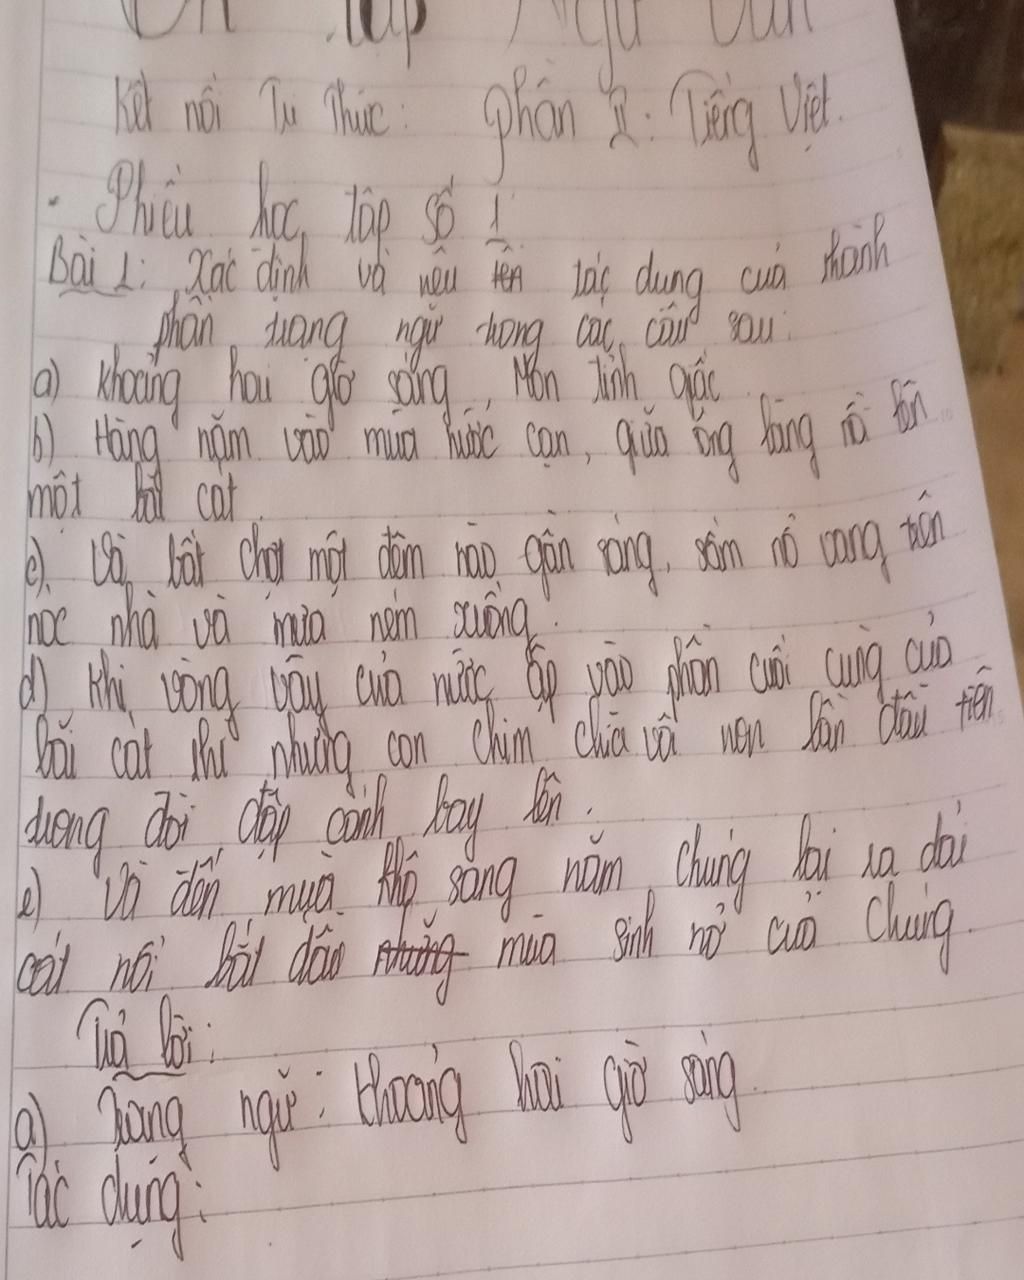 Ôn tập Ngữ Văn
Kết nối Tri Thức: phần 2: Tiếng Việt.
- Phiếu học tập số 1
Bài 1: Xác định và nêu tên tác dụng của thành
phần trạng ngữ trong các câu sau:
a) khoảng hai giờ sáng, Mon tỉnh giấc
b) Hàng năm vào mùa nước cạn, giữa sông lại nổi lên
một bãi cát.
c). Và bất chợt một đêm nào gần sáng, sấm nổ vang trên
nóc nhà và mưa ném xuống.
d) Khi vòng vây của nước ấp vào phần cuối cùng của
bãi cát thì những con chim chìa vôi non lần đầu tiên
trong đời đập cánh bay lên.
e) Và đến mùa khô sang năm, chúng lại ra dải
cát nổi bắt đầu những mùa sinh nở của chúng.
Trả lời:
a) Trạng ngữ: khoảng hai giờ sáng.
Tác dụng: